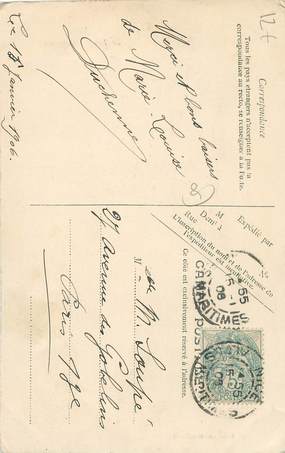 Correspondance
Tous les pays étrangers n'acceptent pas la
correspondance au recto, se renseigner à la Poste.
Le 15 Janvier 1906.
Merci et bons baisers
de Marie-Louise
Duchenne
12 f
Expédié par
M
Rue
N°
Dem! à
L'inscription du nom et de l'adresse de
l'expéditeur est facultative.
CARTE POSTALE
Ce côté est exclusivement réservé à l'adresse.
M
27 Avenue des Gobelins
Paris 13e
MARITIMES